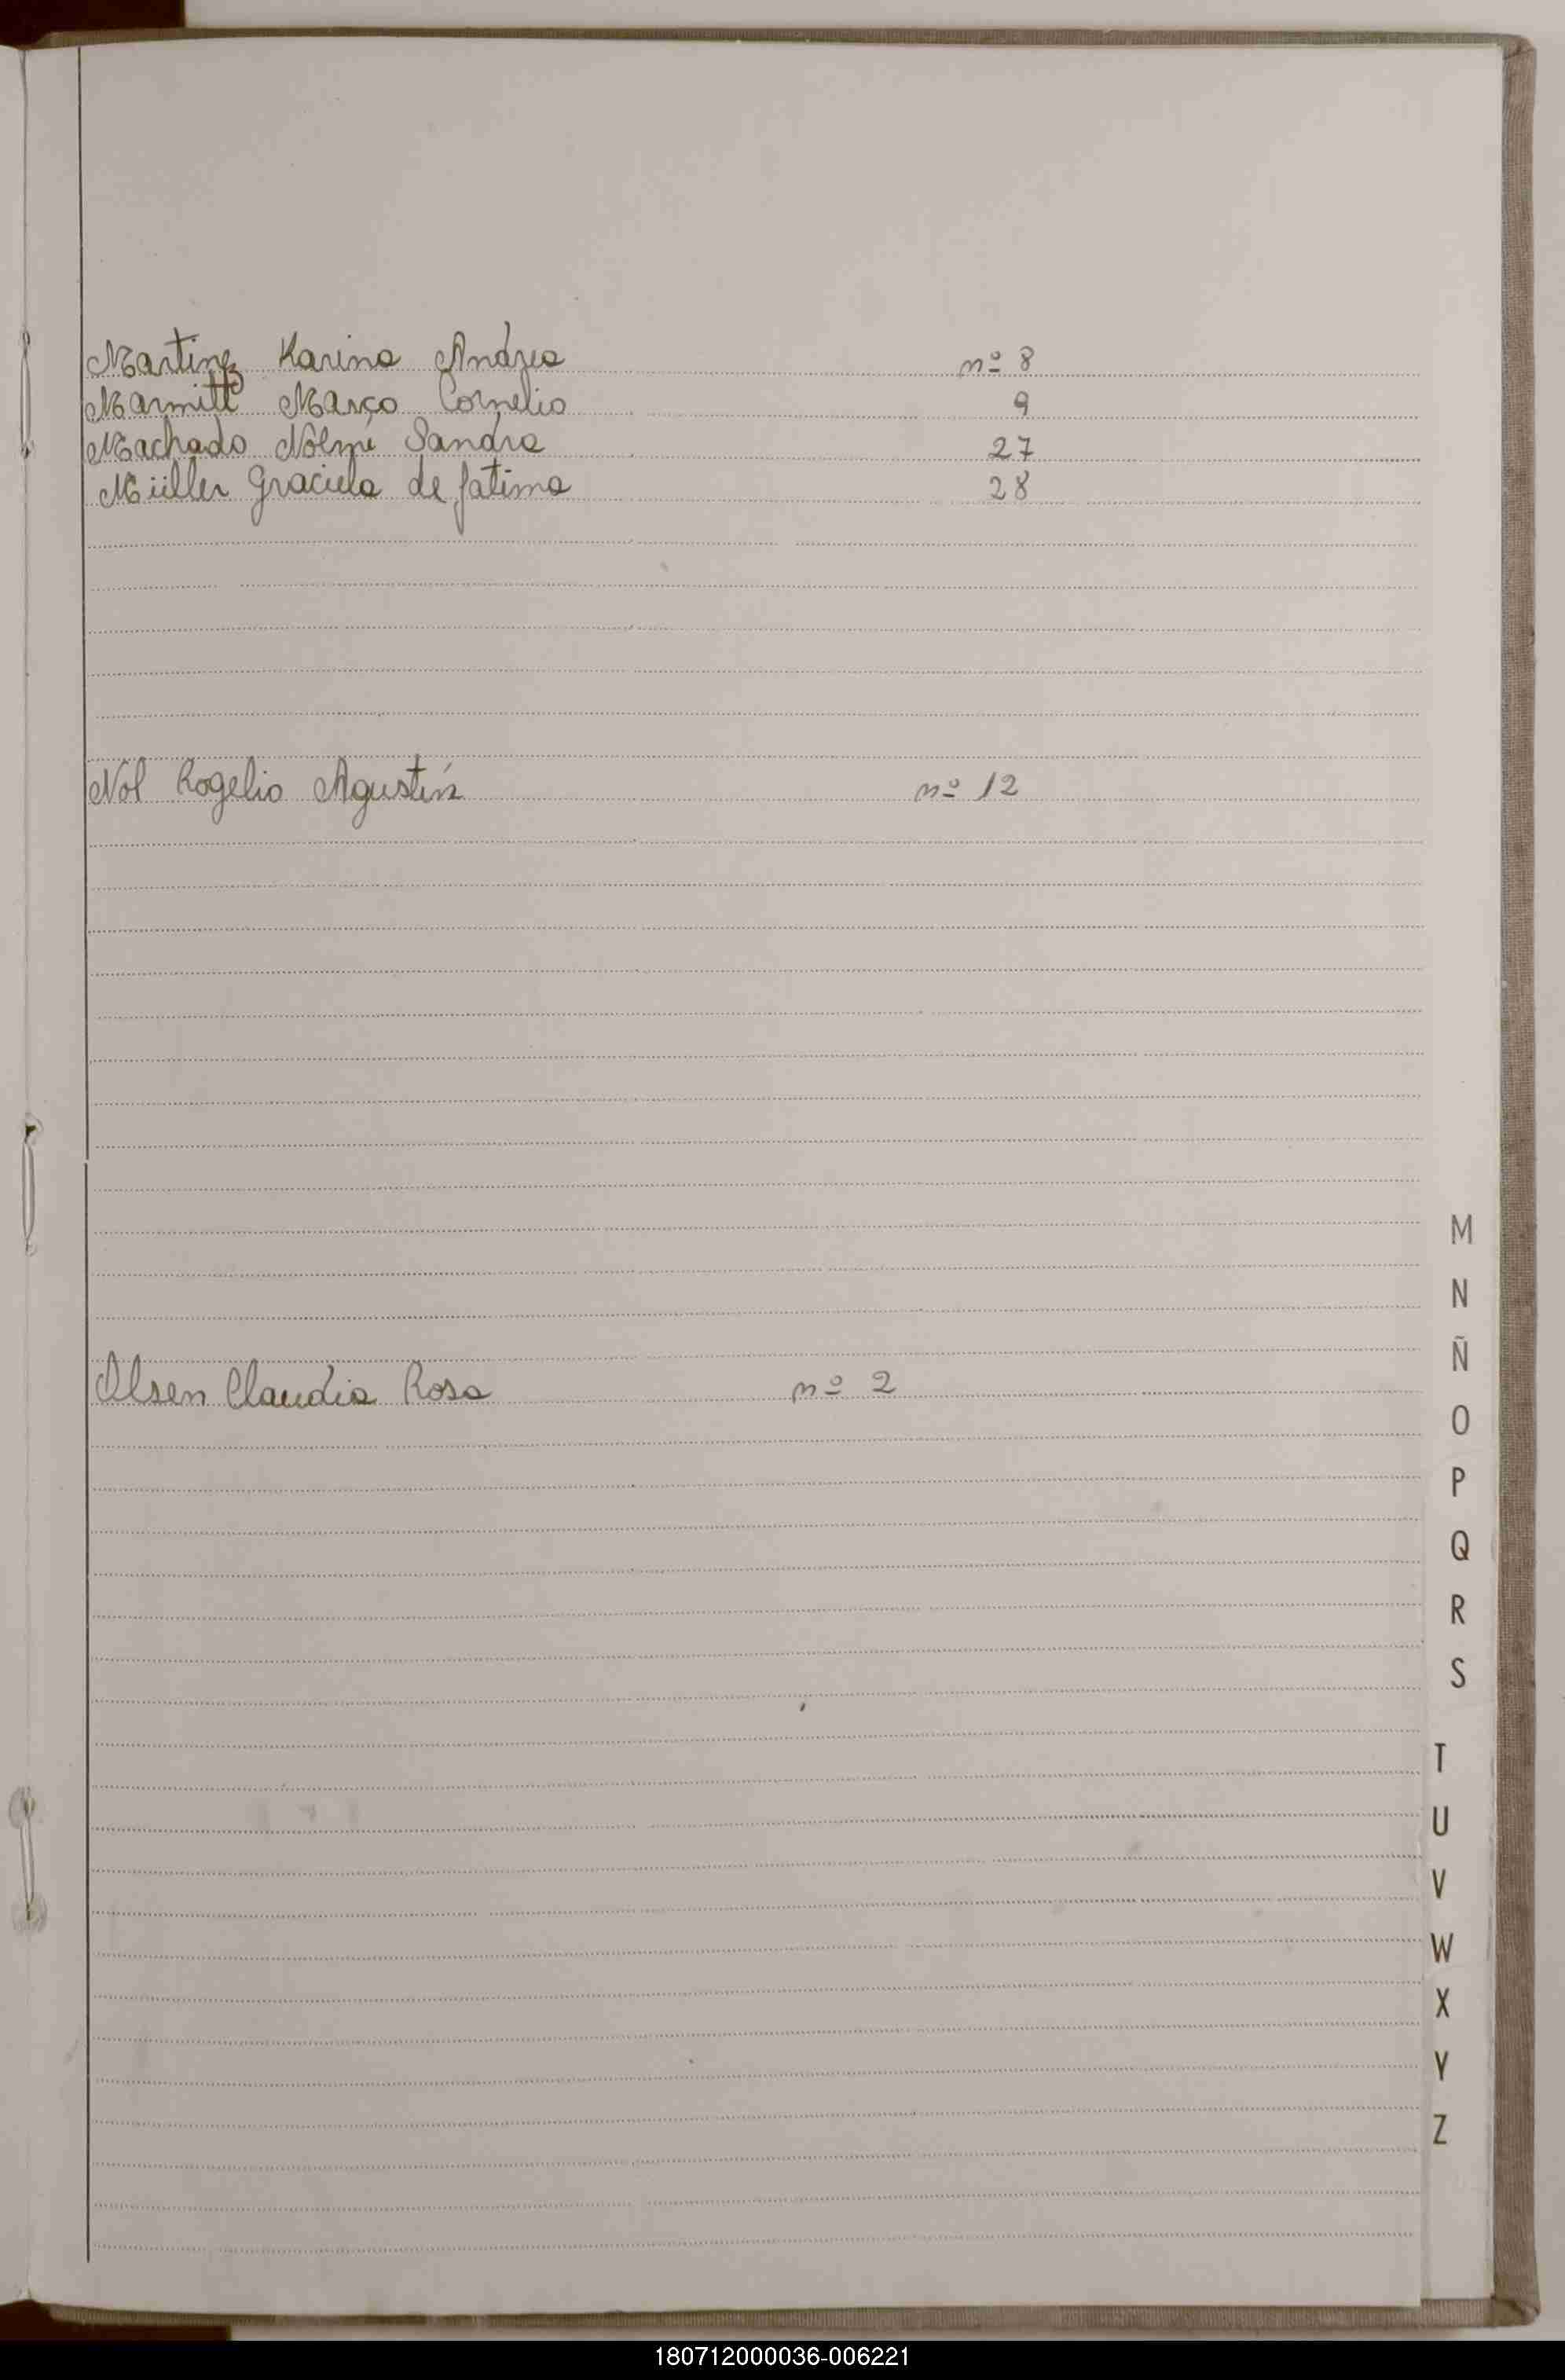 Martinez Karina Andrea nº 8
Marmitt Marco Cornelio 9
Machado Noemi Sandra 27
Müller Graciela de fatima 28
Nol Rogelio Agustín nº 12
Olsen Claudia Rosa nº 2
M
N
Ñ
O
P
Q
R
S
T
U
V
W
X
Y
Z
180712000036-006221